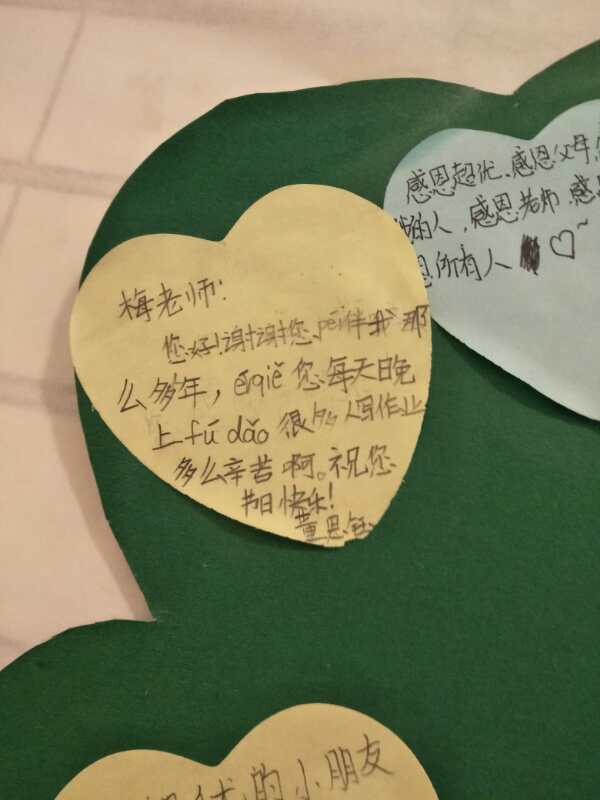 梅老师:
您好!谢谢您péi伴我那
么多年,érqiě您每天晚
上fǔ dǎo很多人写作业
多么辛苦啊。祝您
节日快乐!
董思钰
感恩超优、感恩父母,
的人,感恩老师.感
恩所有人♡~
的小朋友